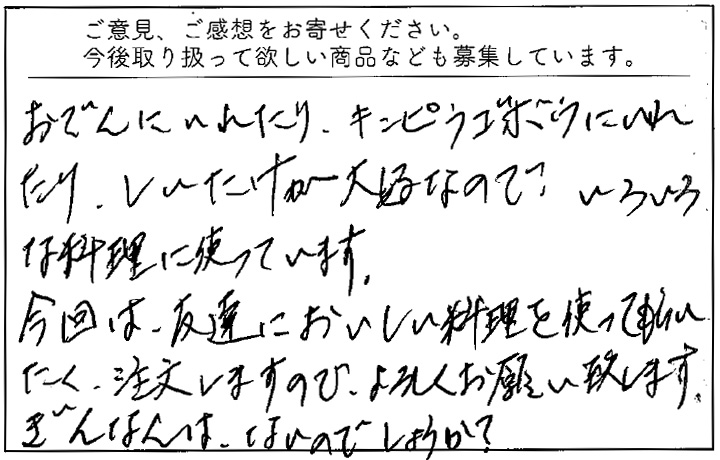 ご意見、ご感想をお寄せください。
今後取り扱って欲しい商品なども募集しています。
おでんにいれたり、キンピラゴボウにいれ
たり、しいたけが大好きなので、いろいろ
な料理に使っています。
今回は、友達においしい料理を使って
たく、注文しますので、よろしくお願い致します。
ぎんなんは、ないのでしょうか?